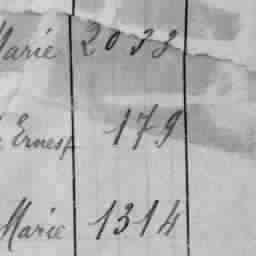 Marie 2033
Ernest 179
Marie 1314